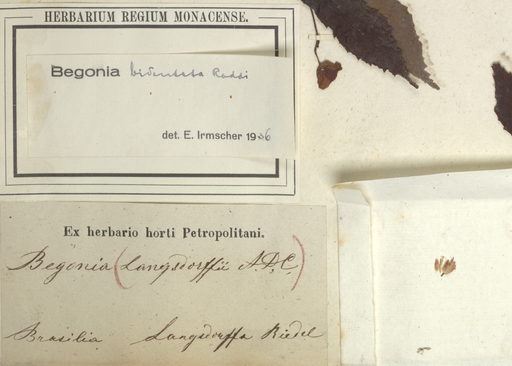 HERBARIUM REGIUM MONACENSE.
Begonia bidentata Raddi
det. E. Irmscher 1936
Ex herbario horti Petropolitani.
Begonia (Langsdorffii A.D.C.)
Brasilia Langsdorff Riedel